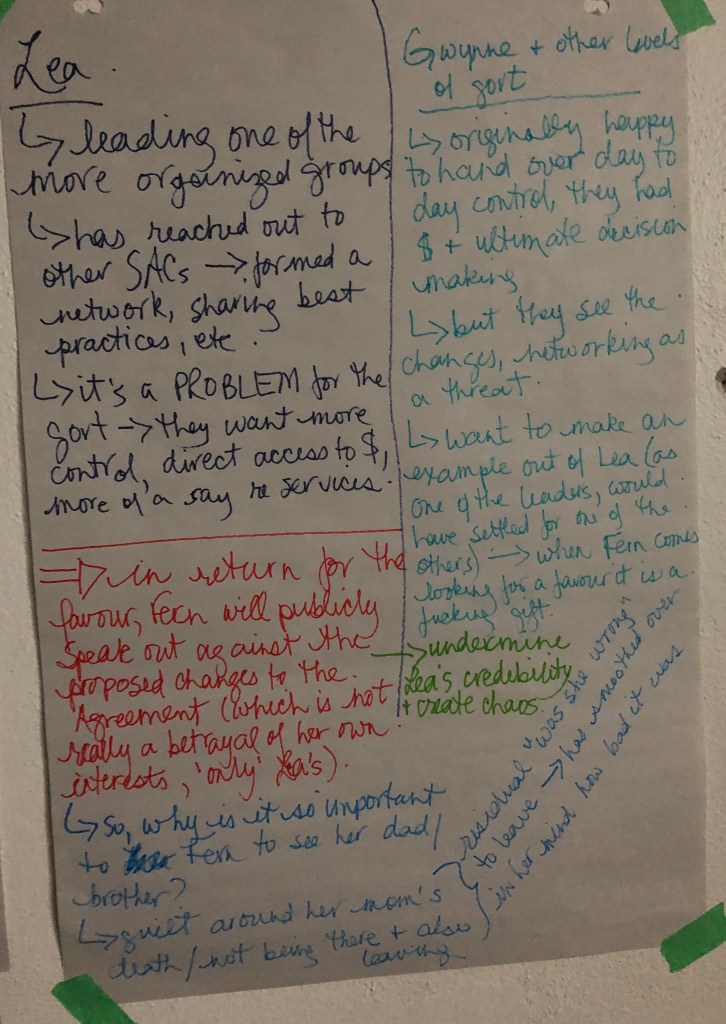 Lea.
↳ leading one of the
more organized groups
↳ has reached out to
other SACs → formed a
network, sharing best
practices, etc.
↳ it's a PROBLEM for the
gort → they want more
control, direct access to $,
more of a say re services.
Gwynne + other levels
of gort
↳ originally happy
to hand over day to
day control, they had
$ + ultimate decision
making
↳ but they see the
changes, networking as
a threat.
↳ want to make an
example out of Lea (as
one of the leaders, would
have settled for one of the
others) → when Fern comes
looking for a favour it is a
fucking gift.
⇒ in return for the
favour, Fern will publicly
speak out against the
proposed changes to the
Agreement (which is not
really a betrayal of her own
interests, 'only' Lea's).
→ undermine
Lea's credibility
+ create chaos.
↳ so, why is it so important
to Fern to see her dad/
brother?
↳ guilt around her mom's
death/not being there + also
leaving
} residual "was she wrong"
to leave → has smoothed over
in her mind how bad it was